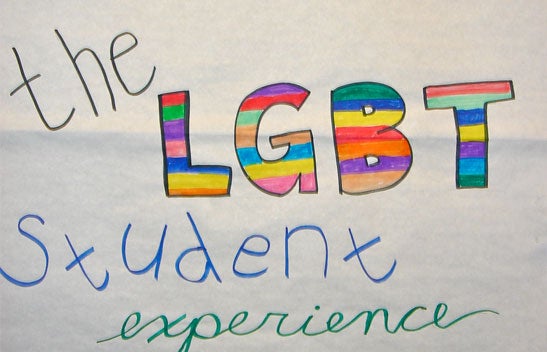 the LGBT
Student
experience